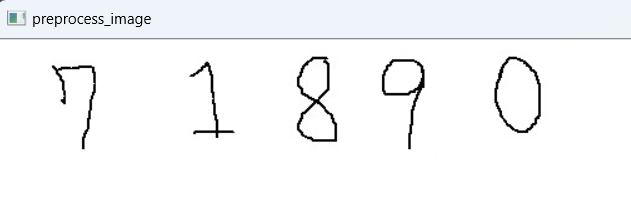 preprocess_image
7 1 8 9 0